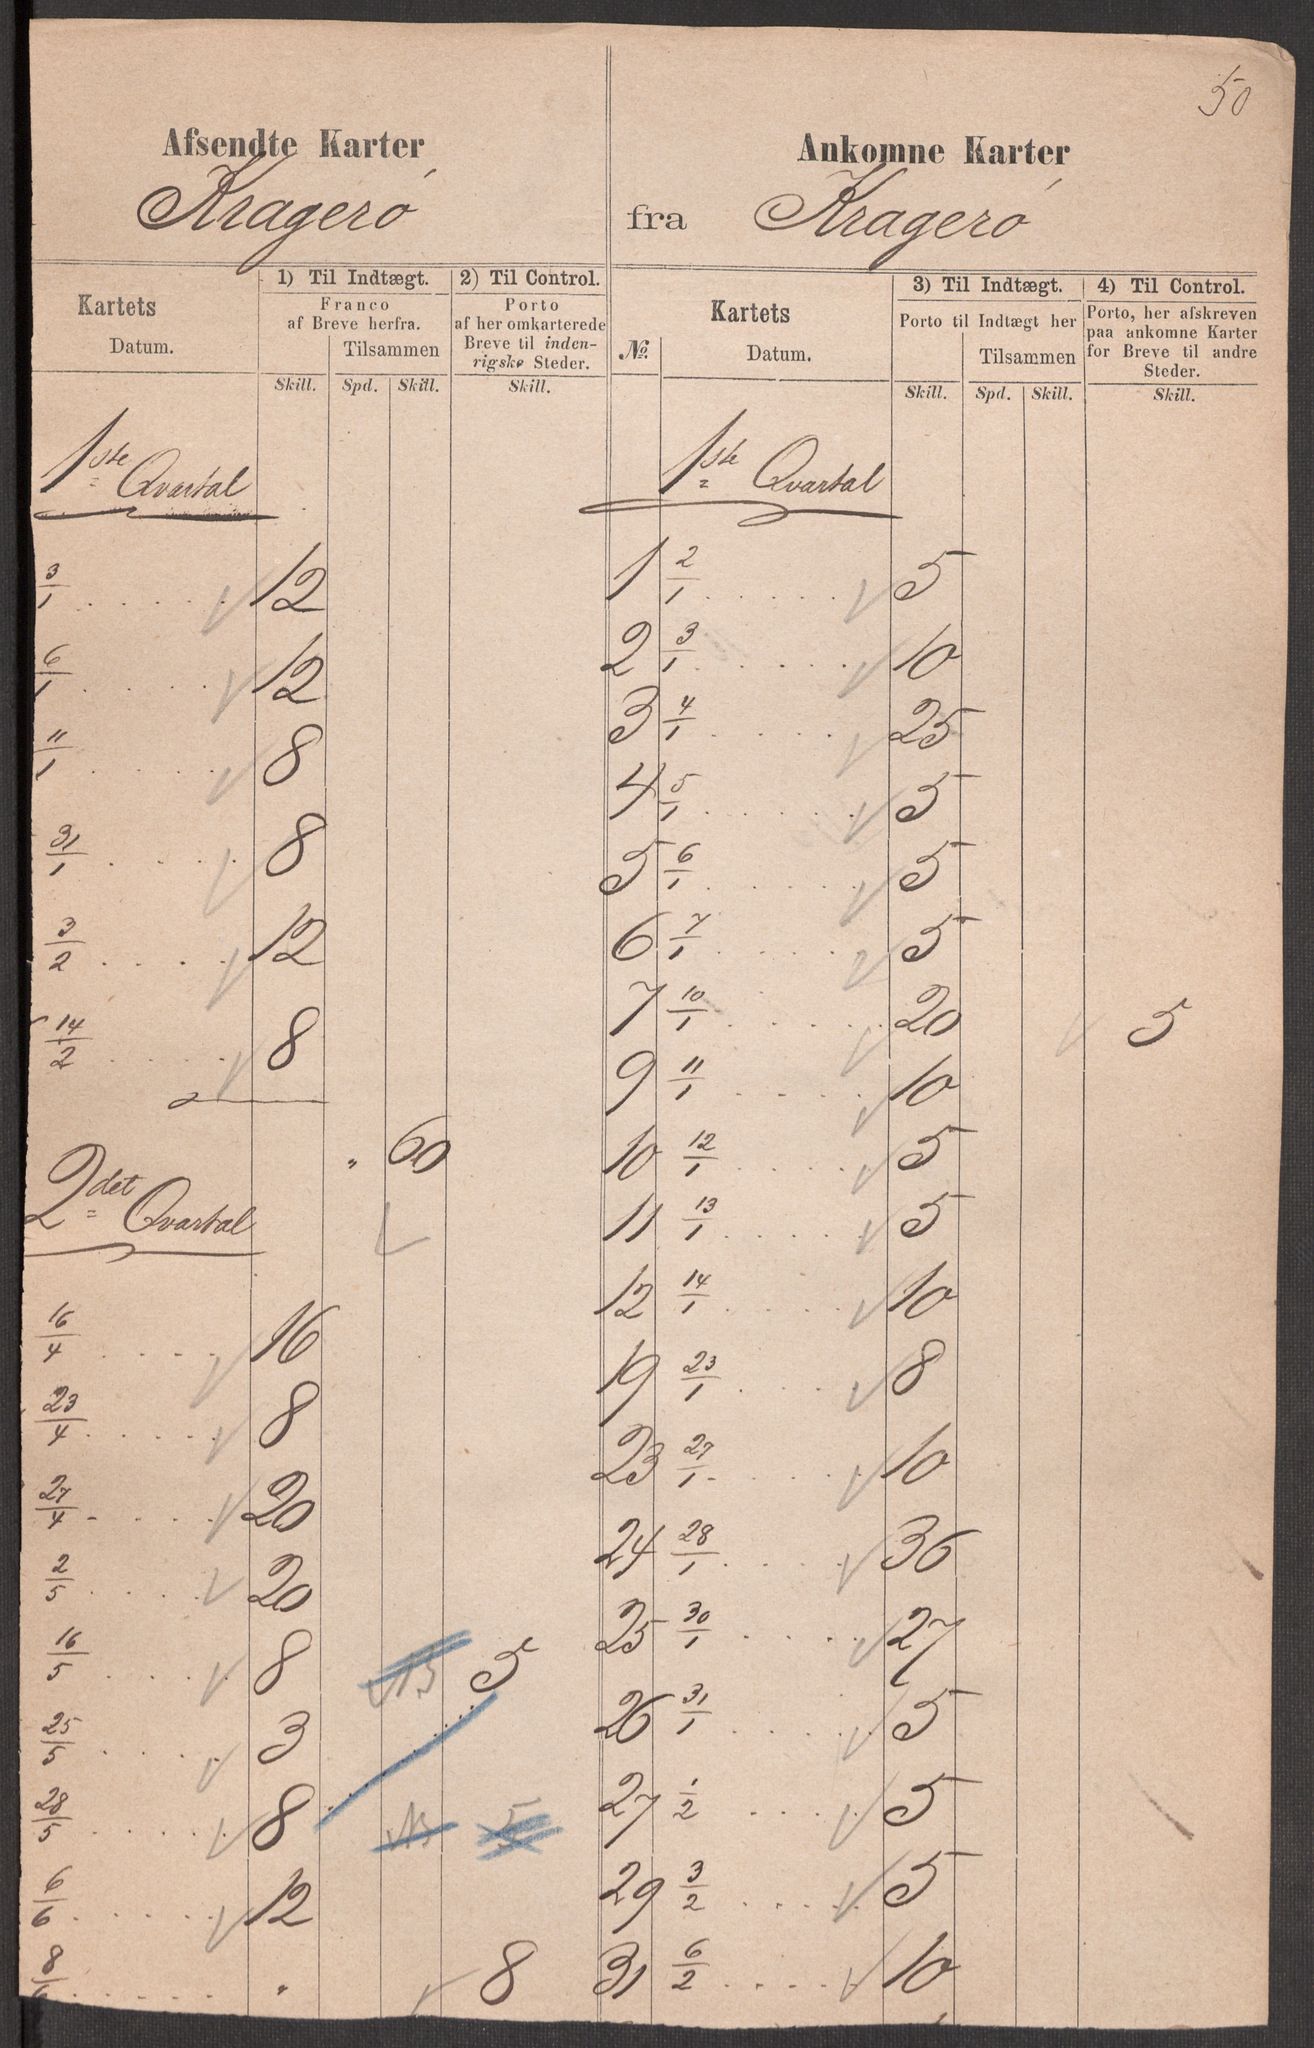 50
Afsendte Karter
Kragerø
Kartets
Datum.
1) Til Indtægt.
Franco
af Breve herfra.
Tilsammen
Skill. Spd. Skill.
2) Til Control.
Porto
af her omkarterede
Breve til inden-
rigske Steder.
Skill.
1ste Qvartal
3/1 . . . . . 12
6/1 . . . . . 12
11/1 . . . . . 8
31/1 . . . . . 8
3/2 . . . . . 12
14/2 . . . . . 8
" 60
2det Qvartal
16/4 . . . . 16
23/4 . . . . . 8
27/4 . . . . 20
2/5 . . . . 20
16/5 . . . . . 8 5
25/5 . . . . . 3
28/5 . . . . . 8 5
6/6 . . . . . 12
8/6 . . . . . " 8
Ankomne Karter
fra Kragerø
No.
Kartets
Datum.
3) Til Indtægt.
Porto til Indtægt her
Tilsammen
Skill. Spd. Skill.
4) Til Control.
Porto, her afskreven
paa ankomne Karter
for Breve til andre
Steder.
Skill.
1ste Qvartal
1 2/1 . . . . . 5
2 3/1 . . . . . 10
3 4/1 . . . . . 25
4 5/1 . . . . . 5
5 6/1 . . . . . 5
6 7/1 . . . . . 5
7 10/1 . . . . . 20 5
9 11/1 . . . . . 10
10 12/1 . . . . . 5
11 13/1 . . . . . 5
12 14/1 . . . . . 10
19 23/1 . . . . . 8
23 27/1 . . . . . 10
24 28/1 . . . . . 36
25 30/1 . . . . . 27
26 31/1 . . . . . 5
27 1/2 . . . . . 5
29 3/2 . . . . . 5
31 6/2 . . . . . 10